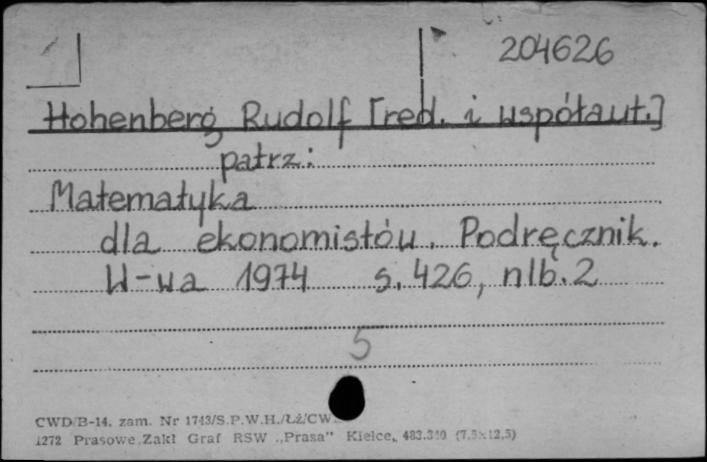 204626
Hohenberg Rudolf [red. i współaut.]
patrz:
Matematyka
dla ekonomistów. Podręcznik.
W-wa 1974 s. 426, nlb. 2
5
CWD/B-14. zam. Nr 1743/S.P.W.H./ŁŻ/CW
1272 Prasowe Zakł Graf RSW „Prasa" Kielce, 483.340 (7,5x12,5)